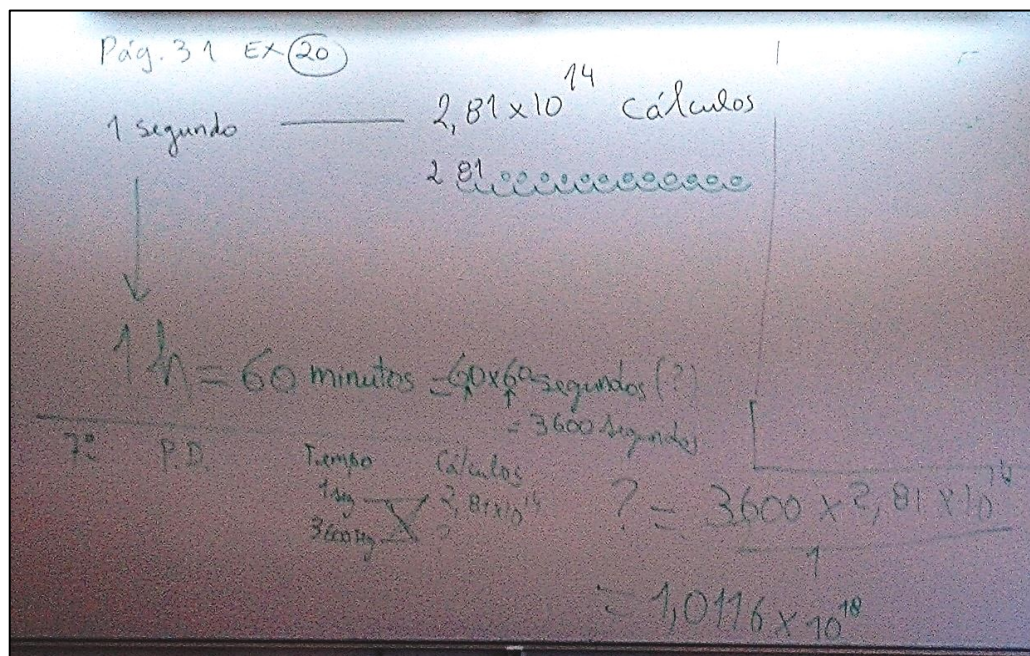 Pág. 31 EX 20
1 segundo —— 2,81x10^14 Cálculos
2 81 000000000000
1h = 60 minutos = 60x60 segundos (?)
= 3600 segundos
7º P.D. Tiempo Cálculos
1 seg 2,81x10^14
3600 seg ?
? = 3600 x 2,81 x 10^14
1
= 1,0116 x 10^18